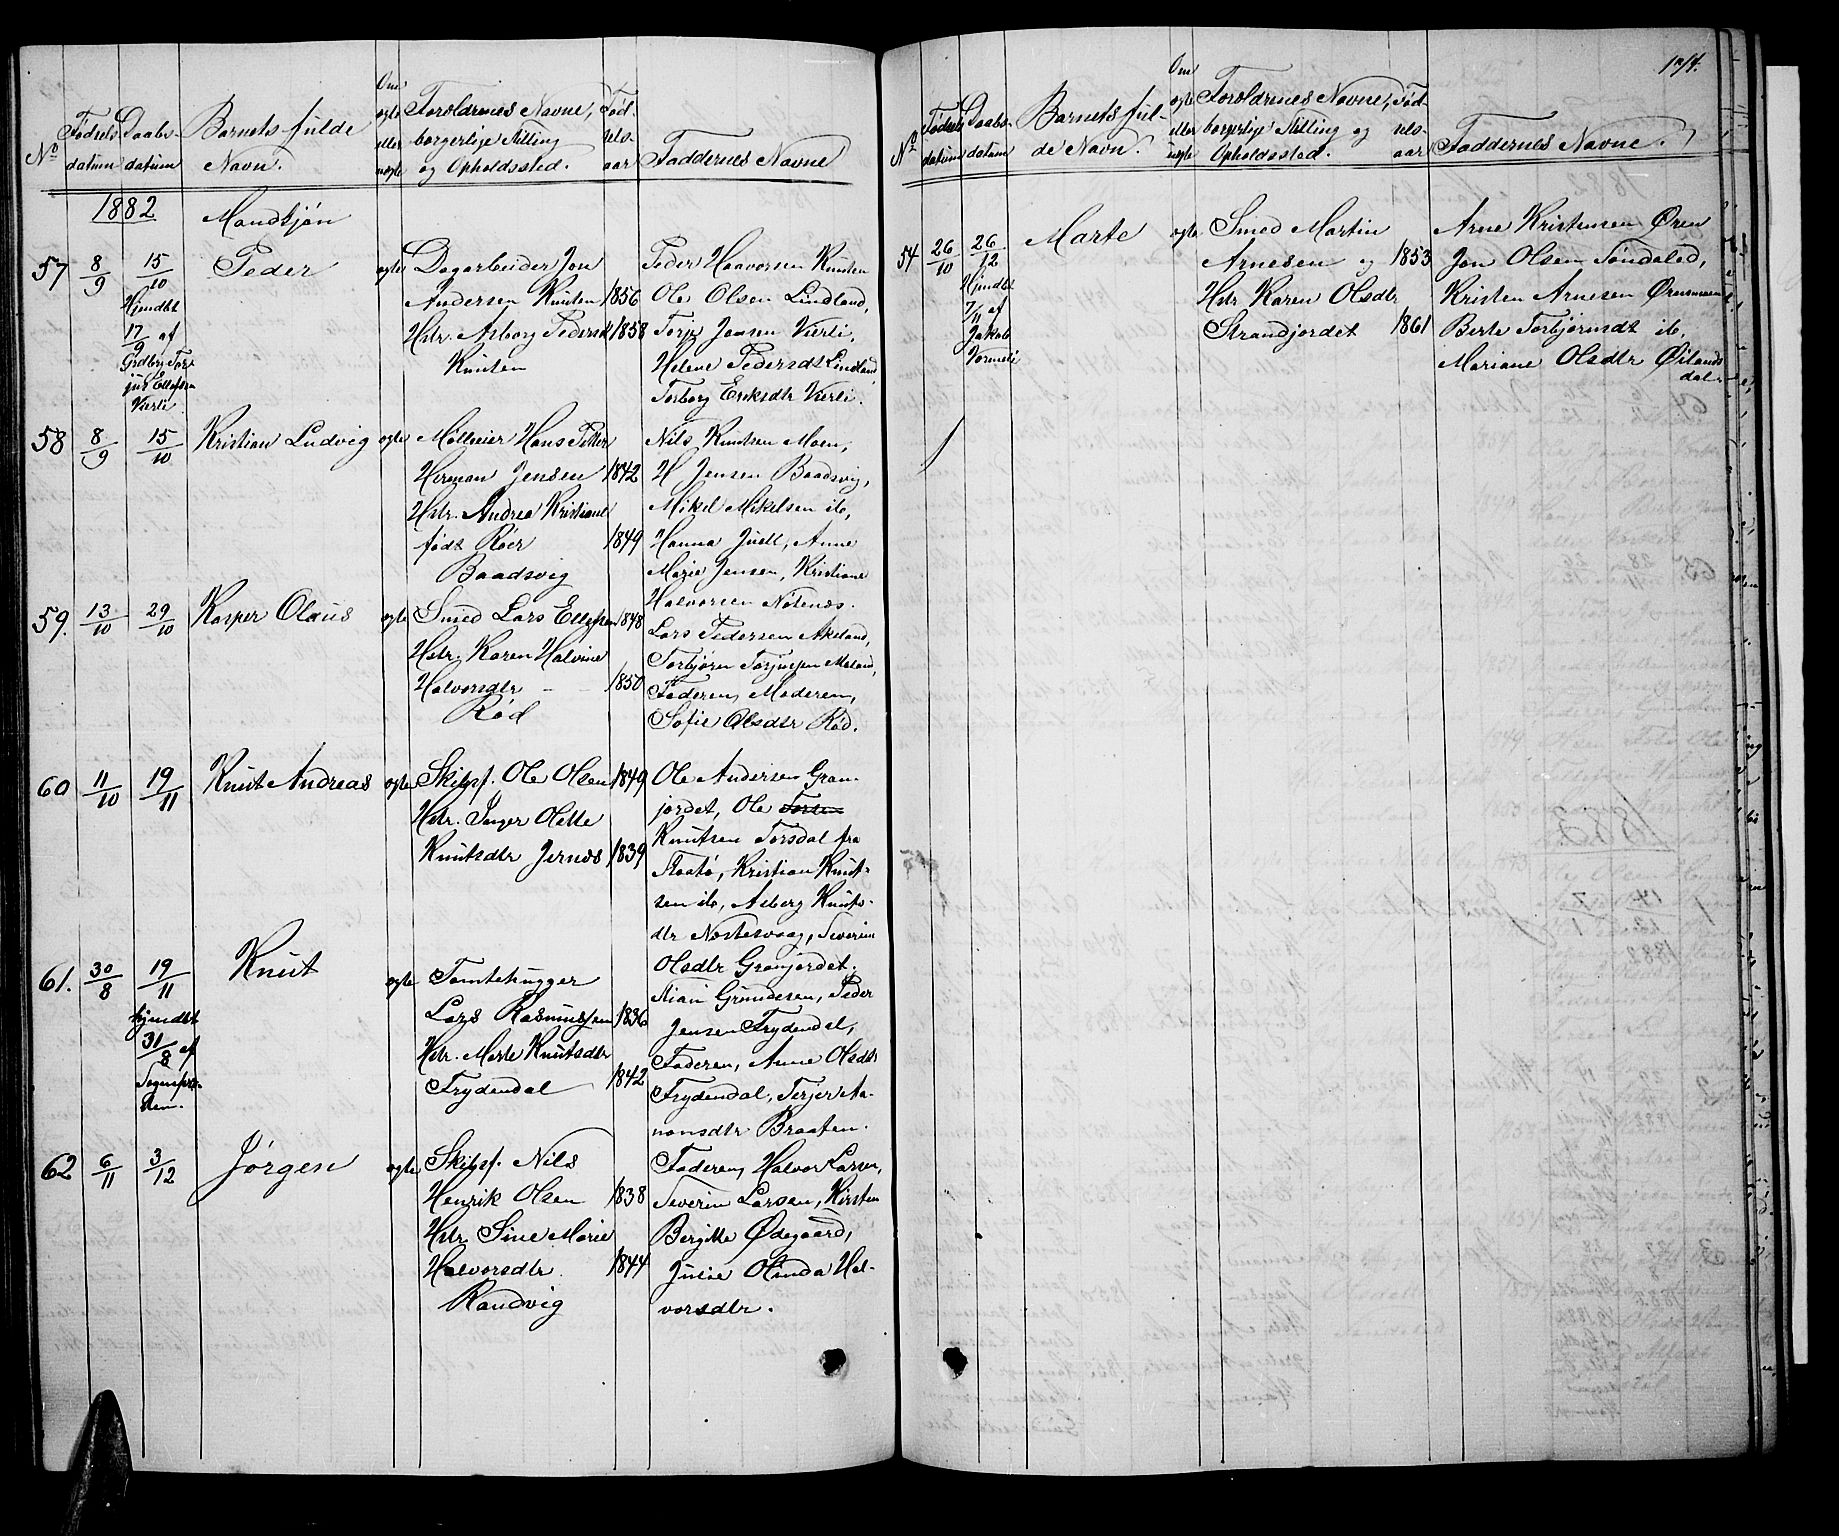 No Fødsels datum Daabs- datum Barnets fulde Navn. Om ægte eller uægte Forældrenes Navne, borgerlige Stilling og Opholdssted. Fød- sels- aar Faddernes Navne
1882 Mandkjøn
57 8/9 15/10 Peder ægte Dagarbeider Jon Peder Haavorsen Knuten
Hjmdbt Andersen Knuten 1856 Ole Olsen Lindland,
17/9 af Hstr. Asborg Pedersd 1858 Torje Jensen Vierli,
Grdbr. Tor- Knuten Helene Pedersdt Lindland,
jus Ellefsen Torborg Eriksdtr Vierli.
Vierli
58 8/9 15/10 Kristian Ludvig ægte Mølleeier Hans Peter Nils Knutsen Moen,
Herman Jensen 1842 H Jensen Baadsvig,
Hstr. Andrea Kristiane Mikel Mikelsen ib,
født Röer 1849 Hanna Juell, Anne
Baadsvig Marie Jensen, Kristiane
Halvorsen Nötenes.
59. 13/10 29/10 Kasper Olaus ægte Smed Lars Ellefsen 1848 Lars Pedersen Akeland,
Hstr. Karen Halvine Torbjørn Torjusen Meland,
Halvorsdtr 1850 Faderen, Moderen,
Rød Sofie Olsdtr Rød.
60 11/10 19/11 Knut Andreas ægte Skibsf. Ole Olsen 1849 Ole Andersen Gran-
Hstr. Inger Olette jordet, Ole
Knutsdtr Jernæs 1839 Knutsen Torsdal fra
Staatø, Kristian Knut-
sen ib, Asberg Knuts-
dtr Nostesvaag, Severine
Olsdtr Granjordet.
61. 30/8 19/11 Knut ægte Tomtehugger Gundesen, Peder
hjmdbt Lars Rasmussen 1836 Jensen Frydendal,
31/8 af Hstr. Marte Knutsdtr Faderen, Anne Olsdtr
Sognepræ- Frydendal 1842 Frydendal, Terjer Aa-
sten. nonsdtr Braaten.
62 6/11 3/12 Jørgen ægte Skibsf. Nils Faderen, Halvor Larsen,
Henrik Olsen 1838 Severin Larsen, Kirsten
Hstr. Sine Marie Bergitte Ødegaard,
Halvorsdtr 1844 Julie Olinda Hal-
Randvig vorsdtr.
No Fødsels datum Daabs- datum Barnets ful- de Navn. Om ægte eller uægte Forældrenes Navne, borgerlige Stilling og Opholdssted. Fød- sels- aar Faddernes Navne.
54 26/10 26/12 Marte ægte Smed Martin Arne Kristensen Øren
Hjmdbt Arnesen og 1853 Jon Olsen Søndeled,
7/11 af Hstr Karen Olsdtr Kristen Arnesen
Jakob Strandjordet 1861 Berte Torbjørnsdt ib.
Vormeli Mariane Olsdtr Øilands
dal
1883.